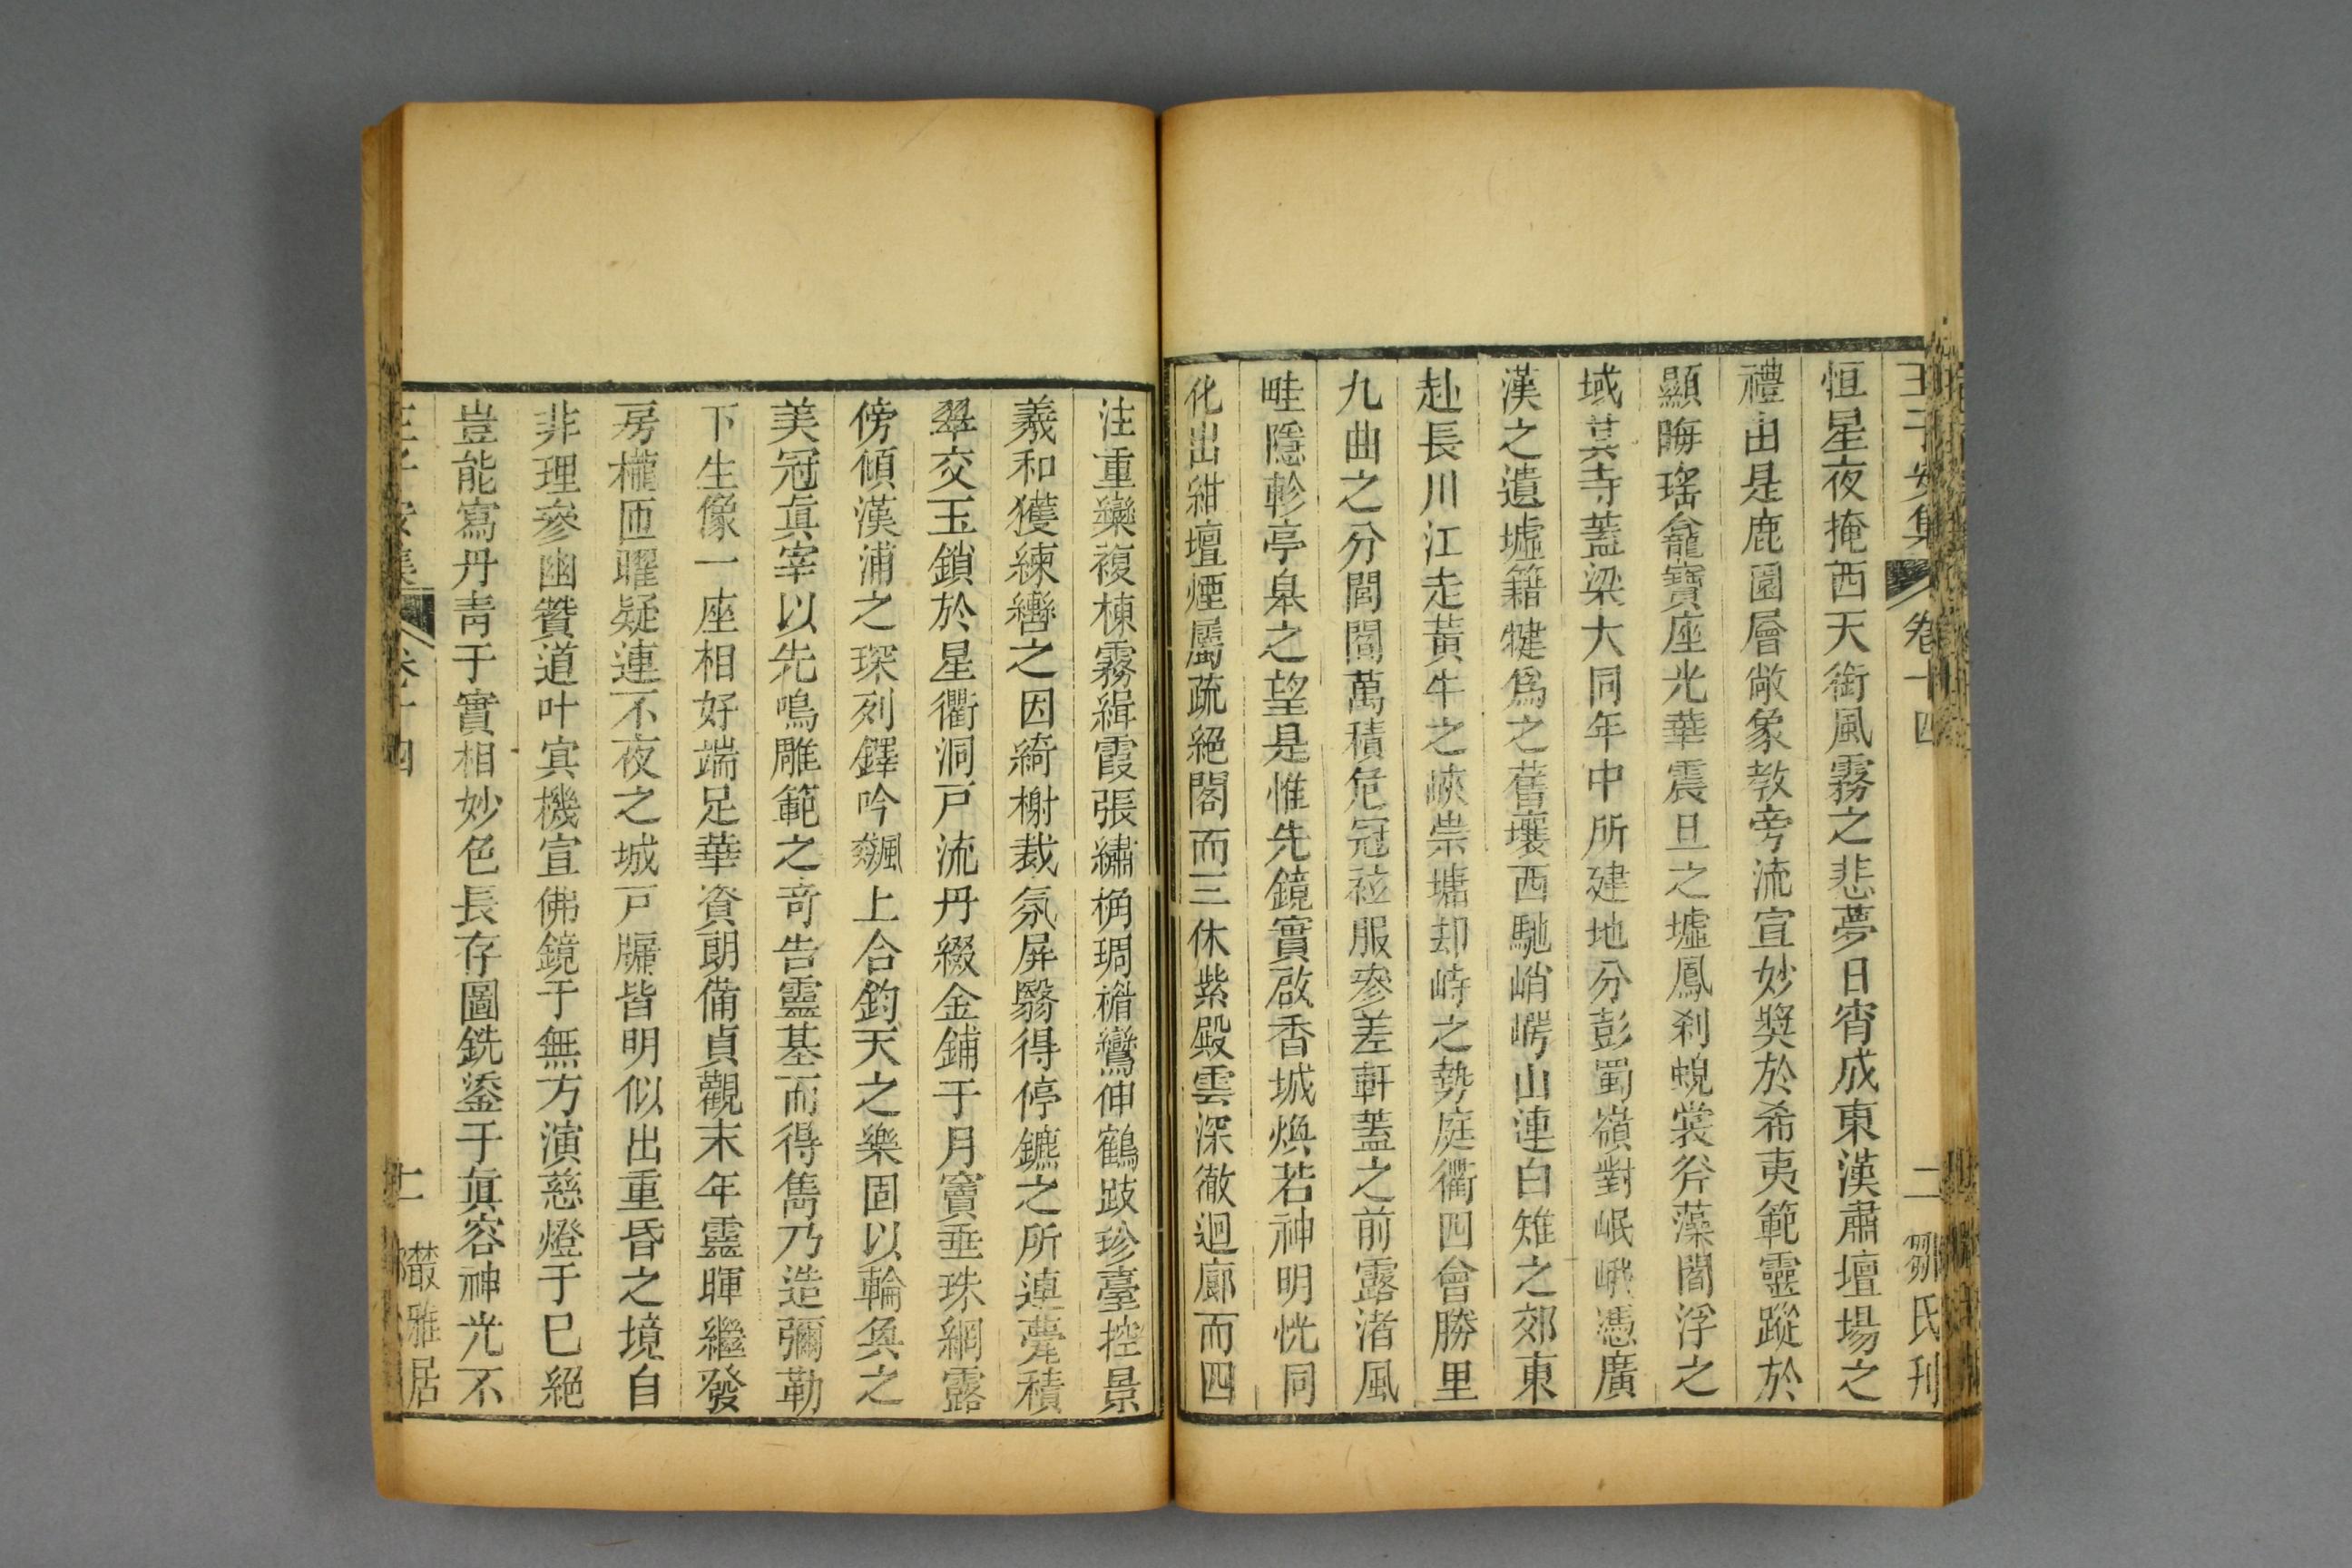 王子安集 卷十四 二 鄒氏刊
恒星夜掩西天銜風霧之悲夢日宵成東漢肅壇場之
禮由是鹿園層敞象教旁流宣妙獎於希夷範靈蹤於
顯晦瑤龕寶座光華震旦之墟鳳刹蜺裳粉藻閻浮之
域其寺蓋梁大同年中所建地分彭蜀嶺對岷峨憑廣
漢之遺墟籍犍爲之舊壤西馳峭崿山連白雉之郊東
赴長川江走黃牛之峽崇墉却峙之勢庭衢四會勝里
九曲之分閭閻萬積危冠袨服參差軒蓋之前露渚風
畦隱軫亭皋之望是惟先鏡實啟香城煥若神明恍同
化出紺壇煙屬疏絕閣而三休紫殿雲深徹迴廊而四
注重欒複棟霧緝霞張繡桷琱楣鸞伸鶴跂珍臺控景
羲和獲練轡之因綺榭裁氛屏翳得停鑣之所連甍積
翠交玉鎖於星衢洞戸流丹綴金鋪于月竇垂珠網露
傍傾漢浦之琛列鐸吟飆上合鈞天之樂固以輪奐之
美冠眞宰以先鳴雕範之奇告靈基而得雋乃造彌勒
下生像一座相好端足華資朗備貞觀末年靈暉繼發
房櫳匝曜疑連不夜之城戸牖皆明似出重昏之境自
非理參幽贊道叶宾機宣佛鏡于無方演慈燈于已絕
豈能寫丹靑于實相妙色長存圖銑鋈于眞容神光不
王子安集 卷十四 叢雅居